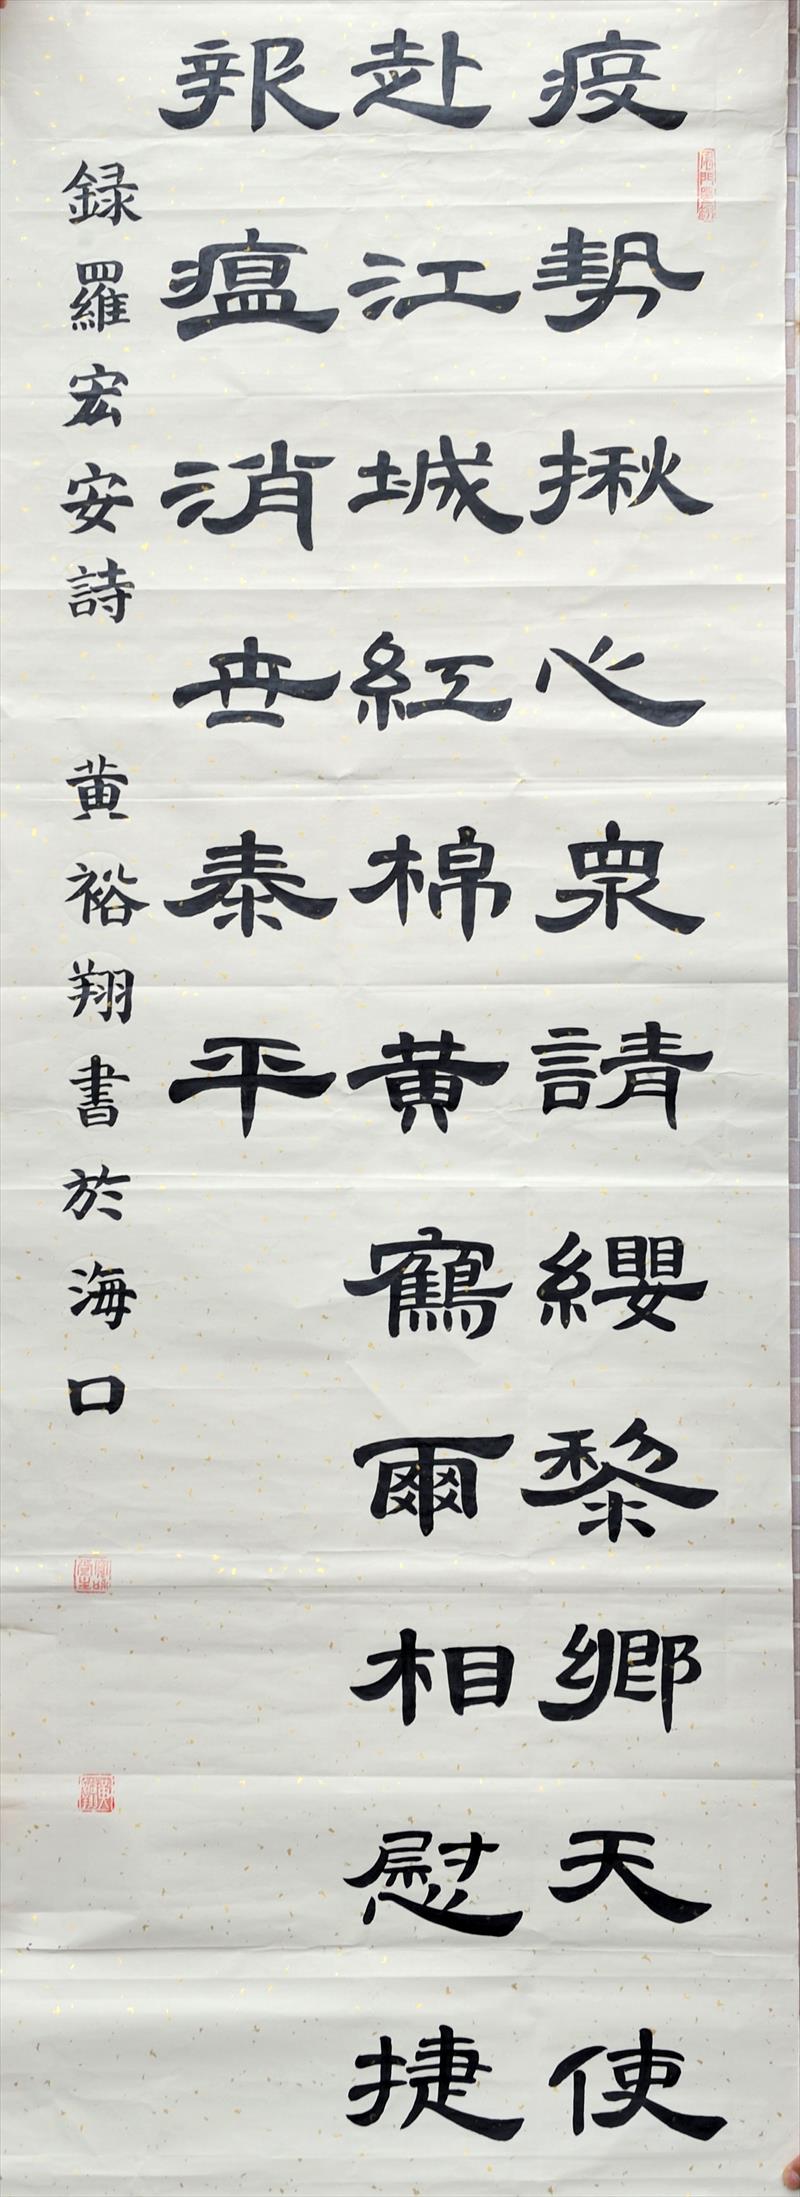 疫勢揪心衆請纓黎鄉天使
赴江城紅棉黃鶴爾相慰捷
報瘟消世泰平
録羅宏安詩 黃裕翔書於海口